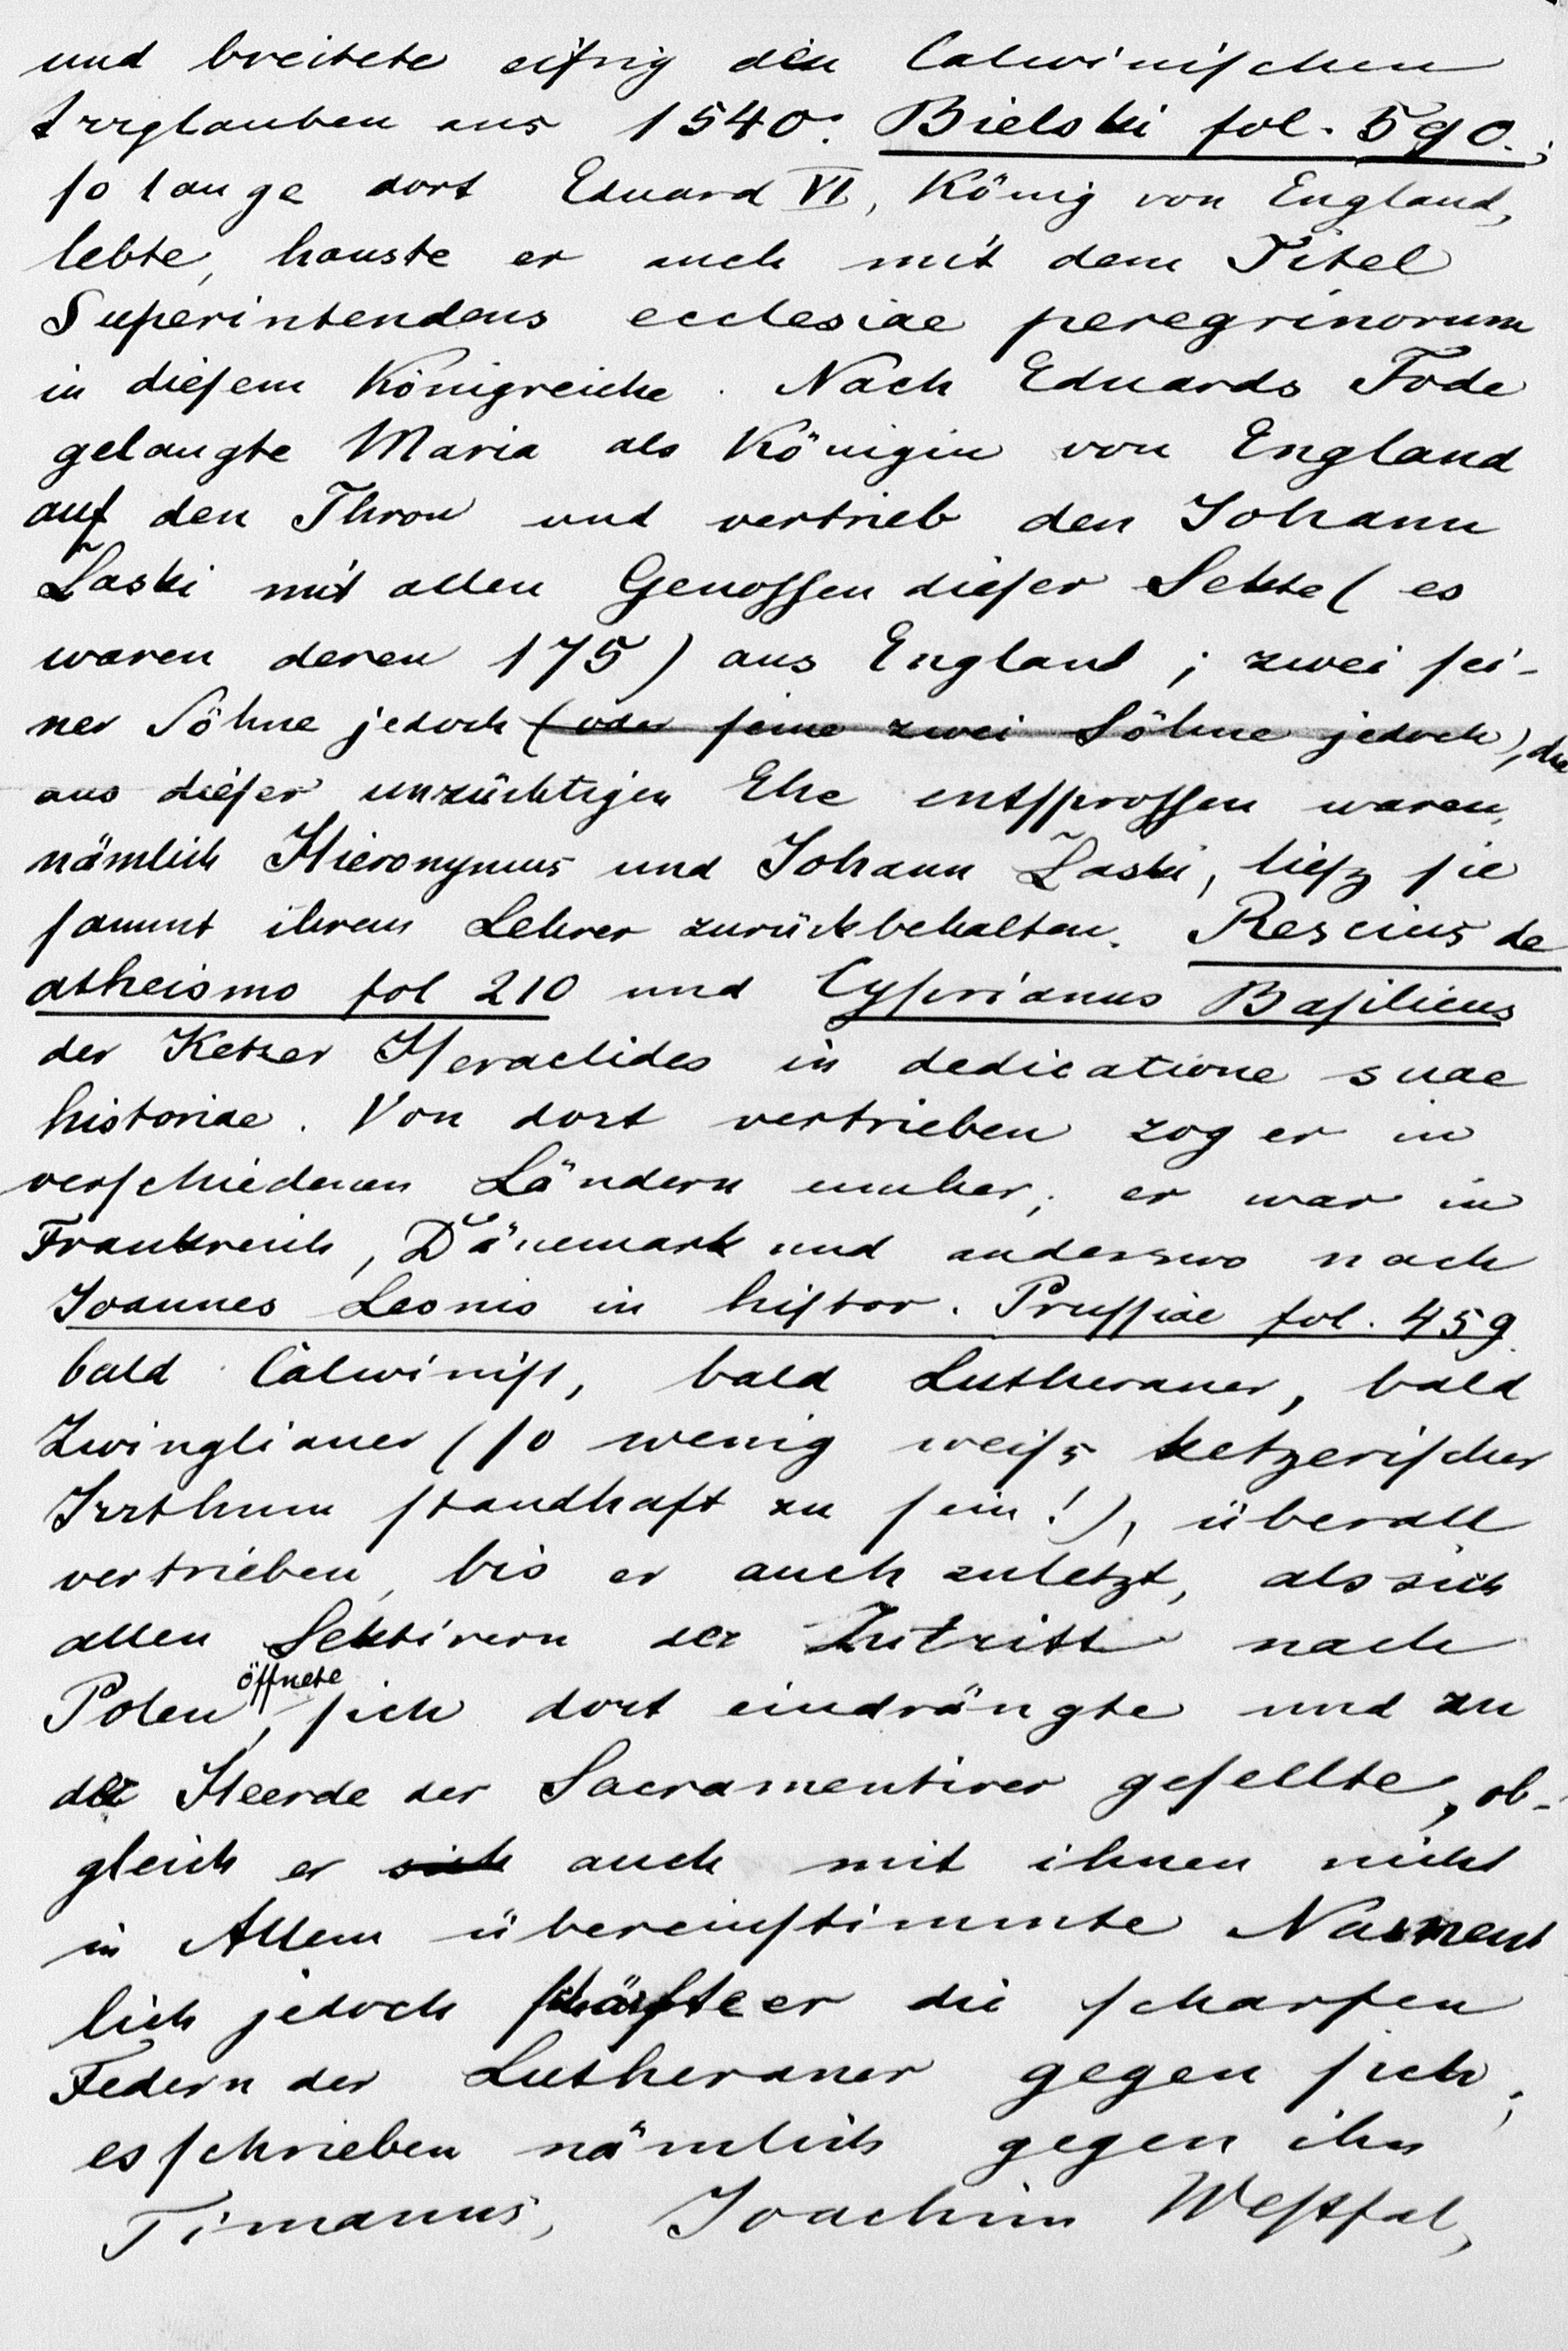 und breitete eifrig den Calwinischen
Irrglauben aus 1540. Bielski fol. 590.;
so lange dort Eduard VI, König von England,
lebte, hauste er auch mit dem Titel
Superintendens ecclesiae peregrinorum
in diesem Königreiche. Nach Eduards Tode
gelangte Maria als Königin von England
auf den Thron und vertrieb den Johann
Łaski mit allen Genossen dieser Sekte (es
waren deren 175) aus England; zwei sei-
ner Söhne jedoch (oder seine zwei Söhne jedoch), die
aus dieser unzüchtigen Ehe entsprossen waren,
nämlich Hieronymus und Johann Łaski, liesz sie
sammt ihrem Lehrer zurückbehalten. Rescius de
atheismo fol 210 und Cyprianus Basilicus
der Ketzer Heraclides in dedicatione suae
historiae. Von dort vertrieben zog er in
verschiedenen Ländern umher; er war in
Frankreich, Dänemark und anderswo nach
Joannes Leonis in histor. Prussiae fol. 459.
bald Calwinist, bald Lutheraner, bald
Zwinglianer (so wenig weiss ketzerischer
Irrthum standhaft zu sein!), überall
vertrieben, bis er auch zuletzt, als sich
allen Sektirern der Zutritt nach
Polen öffnete, sich dort eindrängte und zu
der Heerde der Sacramentirer gesellte, ob-
gleich er sich auch mit ihnen nicht
in Allem übereinstimmte Nament
lich jedoch schärfte er die scharfen
Federn der Lutheraner gegen sich;
es schrieben nämlich gegen ihn
Timanus, Joachim Westfal,